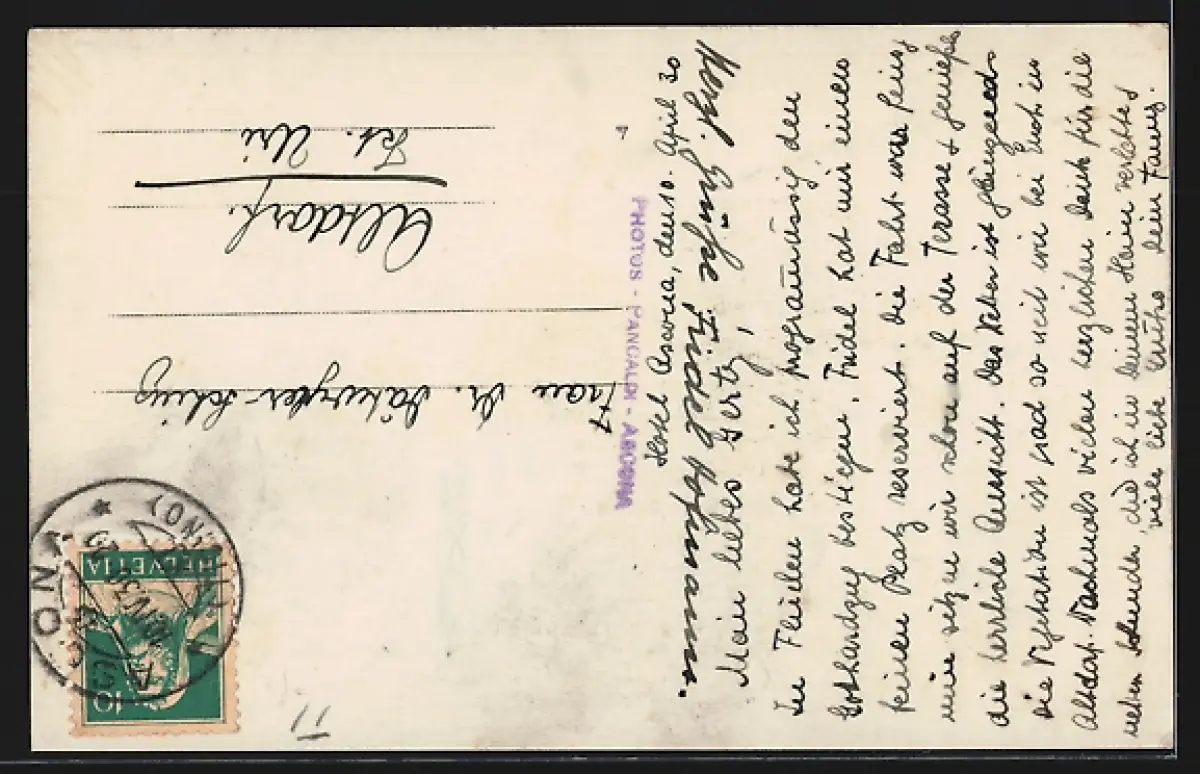 Hotel Ascona, den 10. April 30
Herzl. Grüsse Fridel Hofmann.
Mein liebes Gertz,
In Flüelen habe ich programmässig den
Gotthardzug bestiegen, Fridel hat mir einen
feinen Platz reserviert. Die Fahrt war fein,
nun sitzen wir schon auf der Terasse & geniessen
die herrliche Aussicht. Das Wetter ist glänzend
die Vegetation ist grad so weit wie bei Euch in
Altdorf. Nochmals vielen herzlichen Dank für die
netten Stunden, die ich in deinem Heim verlebte &
viele liebe Grüsse dein Fanny.
PHOTOS - PANCALDI - ASCONA
Frau Dr.
Altdorf.
Kt. Uri
HELVETIA
10
ASCONA
10.IV.30